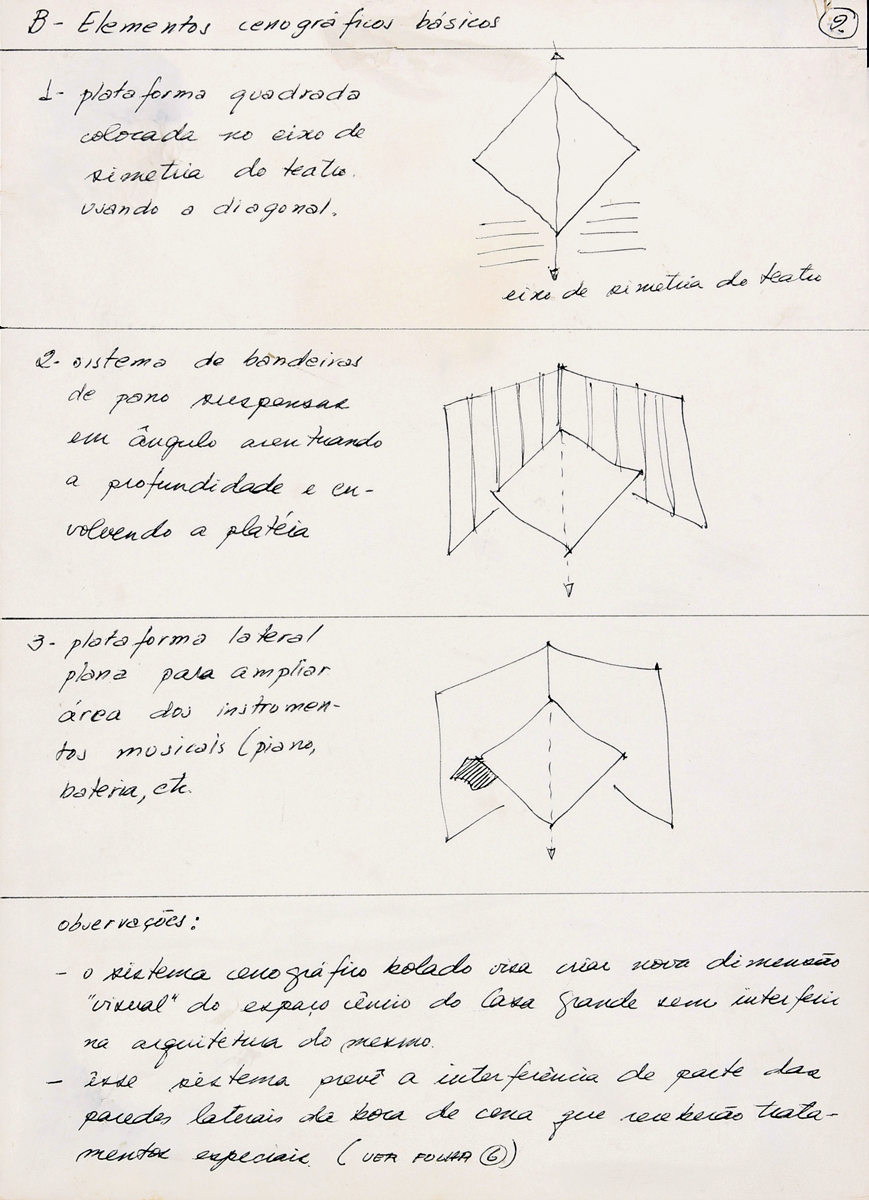 B- Elementos cenográficos básicos
2.
1- plataforma quadrada
colocada no eixo de
simetria do teatro.
usando a diagonal.
eixo de simetria do teatro
2- sistema de bandeiras
de pano suspensas
em ângulo acentuando
a profundidade e en-
volvendo a platéia
3- plataforma lateral
plana para ampliar
área dos instrumen-
tos musicais (piano,
bateria, etc.
observações:
- o sistema cenográfico bolado visa criar nova dimensão
"visual" do espaço cênico do Casa Grande sem interferir
na arquitetura do mesmo.
- êsse sistema prevê a interferência de parte das
paredes laterais da boca de cena que receberão trata-
mentos especiais. (VER FOLHA 6)